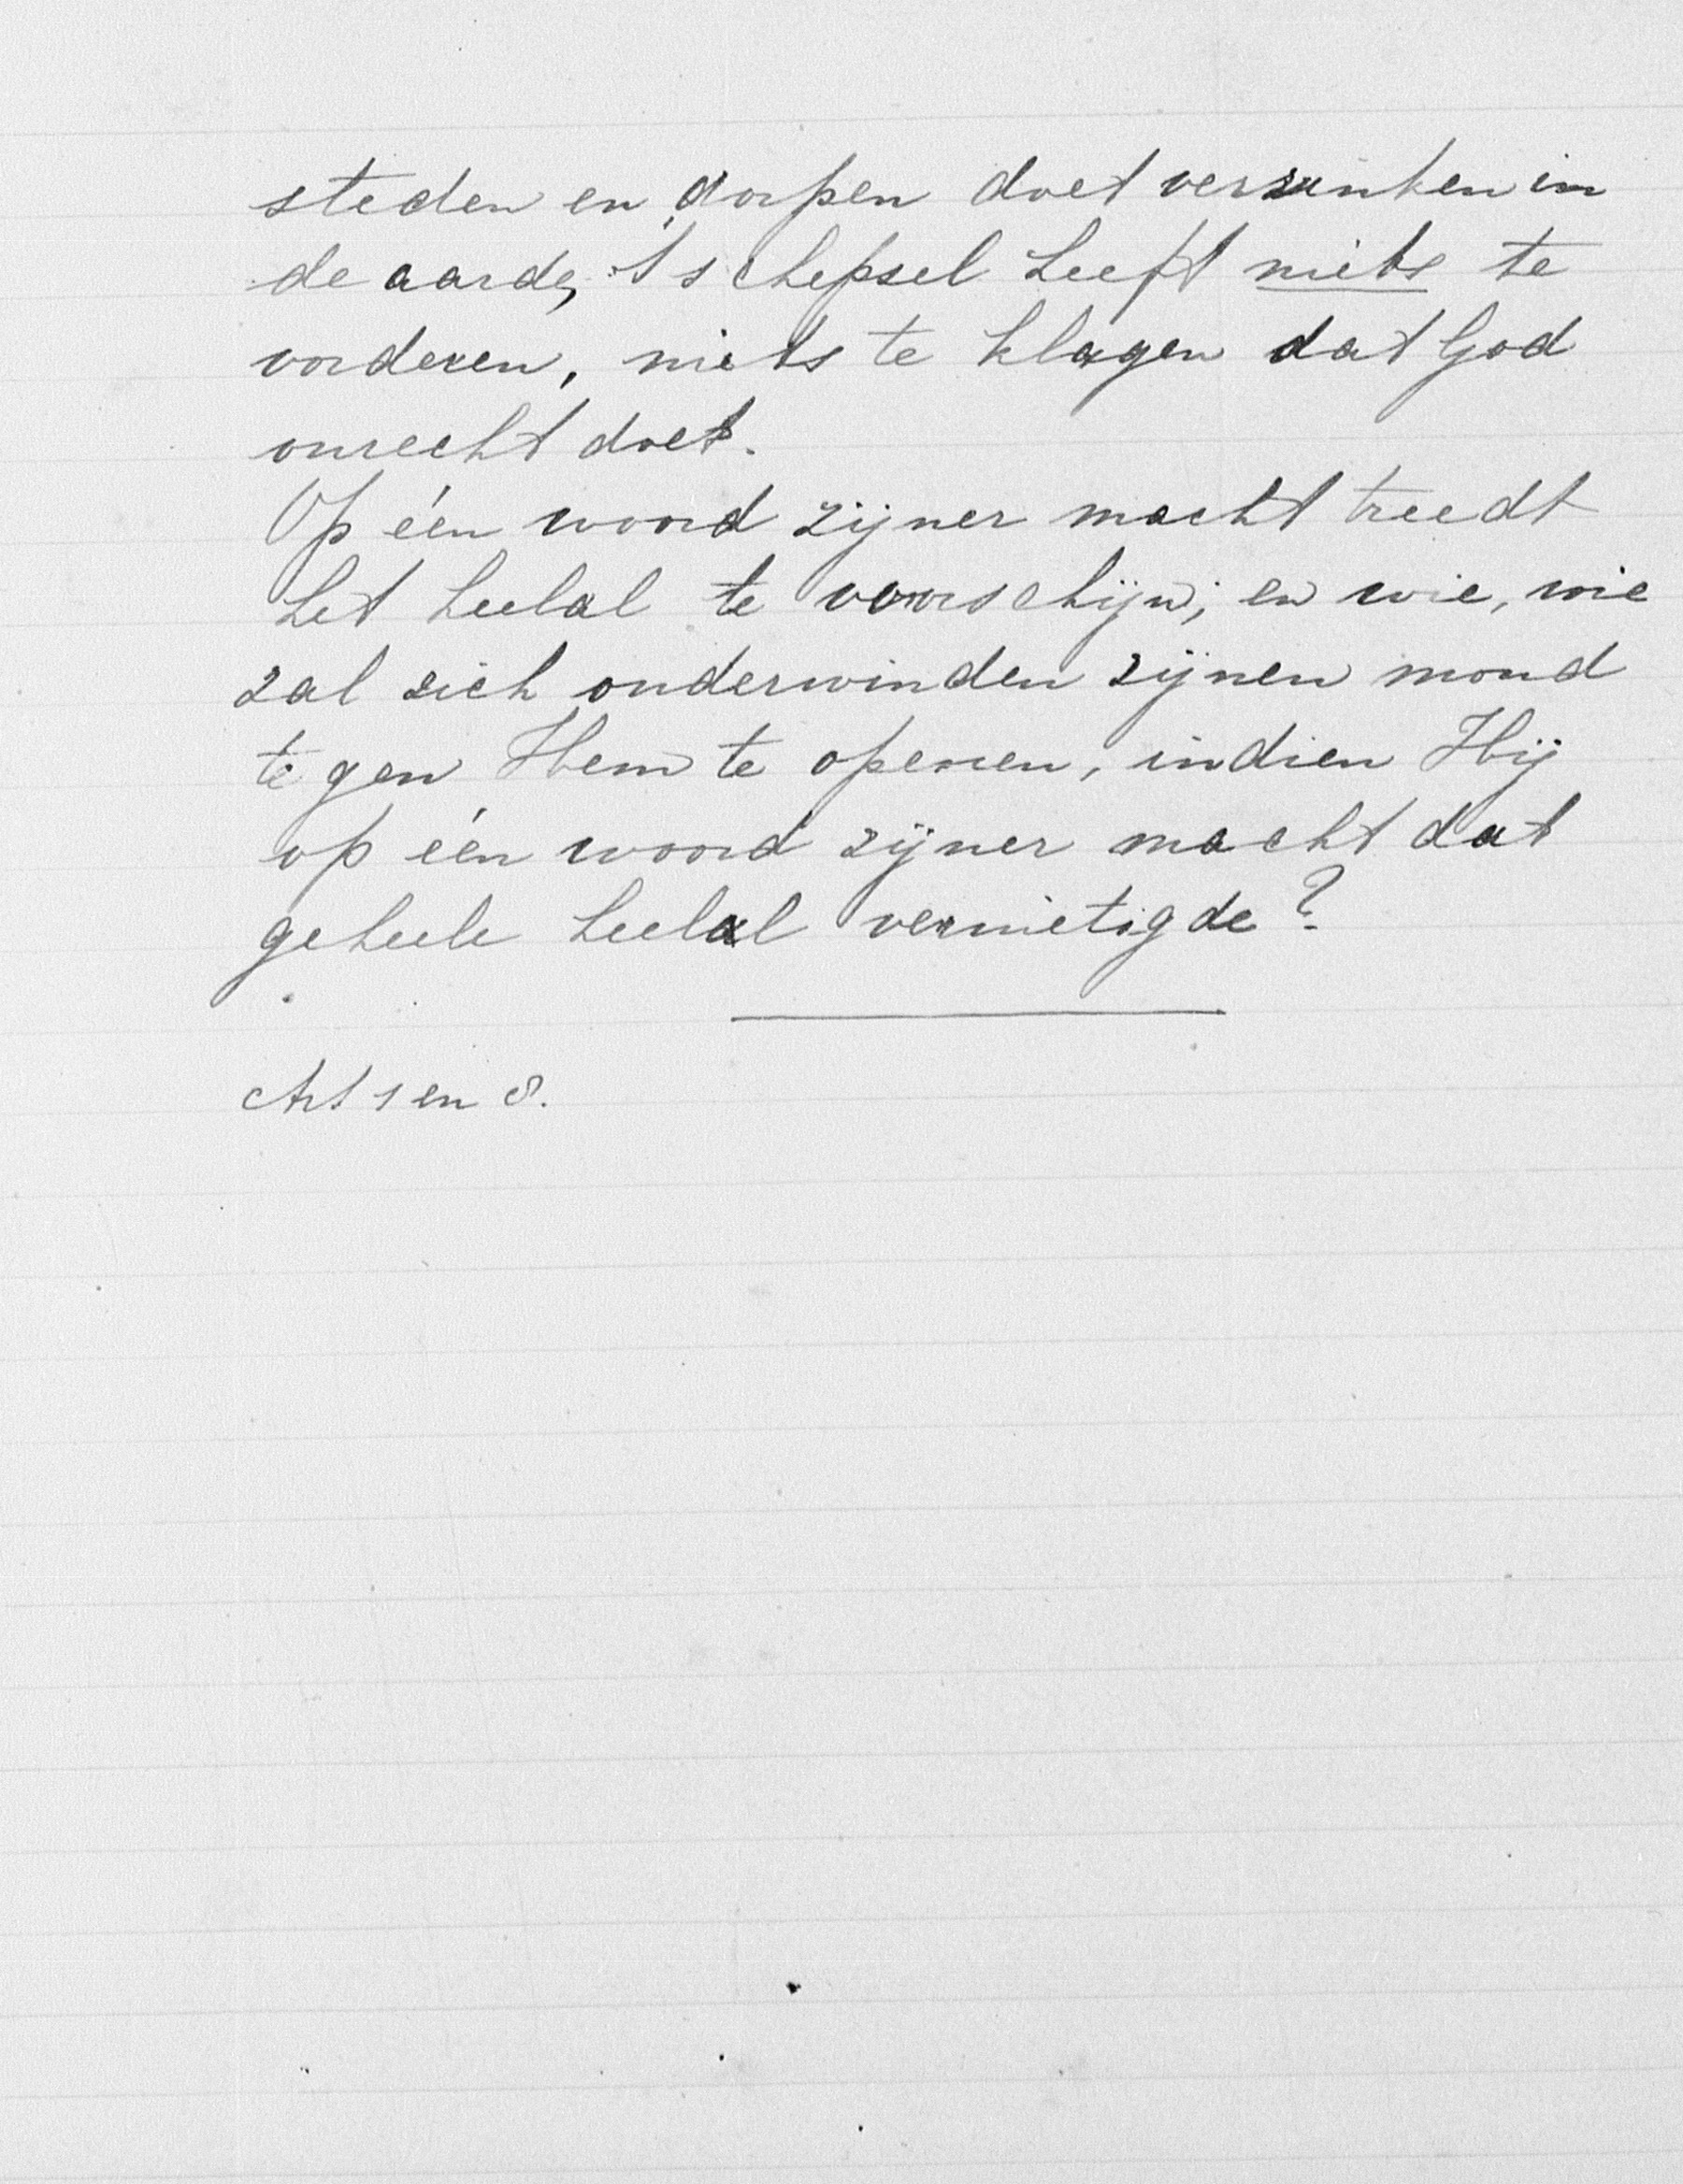 steden en dorpen doet verzinken in
de aarde, 't schepsel heeft niets te
vorderen, niets te klagen dat God
onrecht doet.
Op één woord zijner macht treedt
het heelal te voorschijn; en wie, wie
zal zich onderwinden zijnen mond
tegen Hem te openen, indien Hij
op één woord zijner macht dat
geheele heelal vernietigde?
Art 1 en 8.